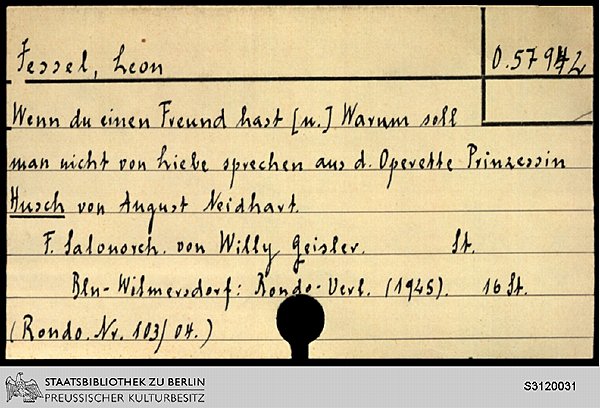 Jessel, Leon
O. 57942
Wenn du einen Freund hast [u.] Warum soll
man nicht von Liebe sprechen aus d. Operette Prinzessin
Husch von August Neidhart.
F. Salonorch. von Willy Geisler. St.
Bln-Wilmersdorf: Rondo-Verl. (1945). 16 St.
(Rondo. Nr. 103/04.)
STAATSBIBLIOTHEK ZU BERLIN
PREUSSISCHER KULTURBESITZ
S3120031